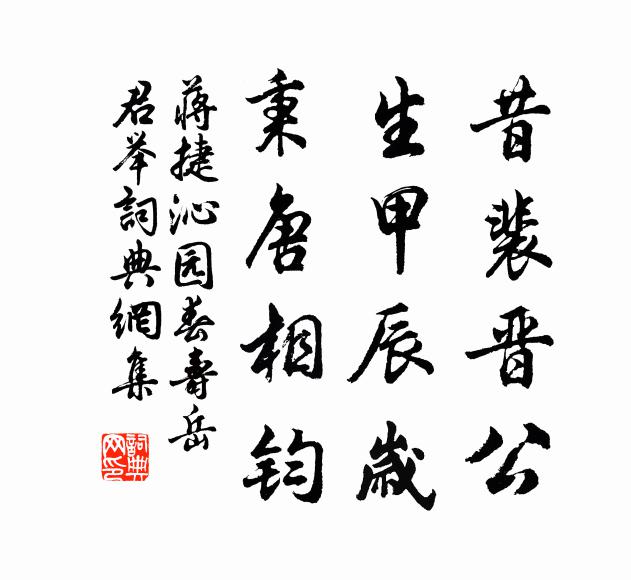 昔裴晋公
生甲辰歲
秉唐相钧
蒋捷沁园春壽岳
君举詞典網集
詞典网印